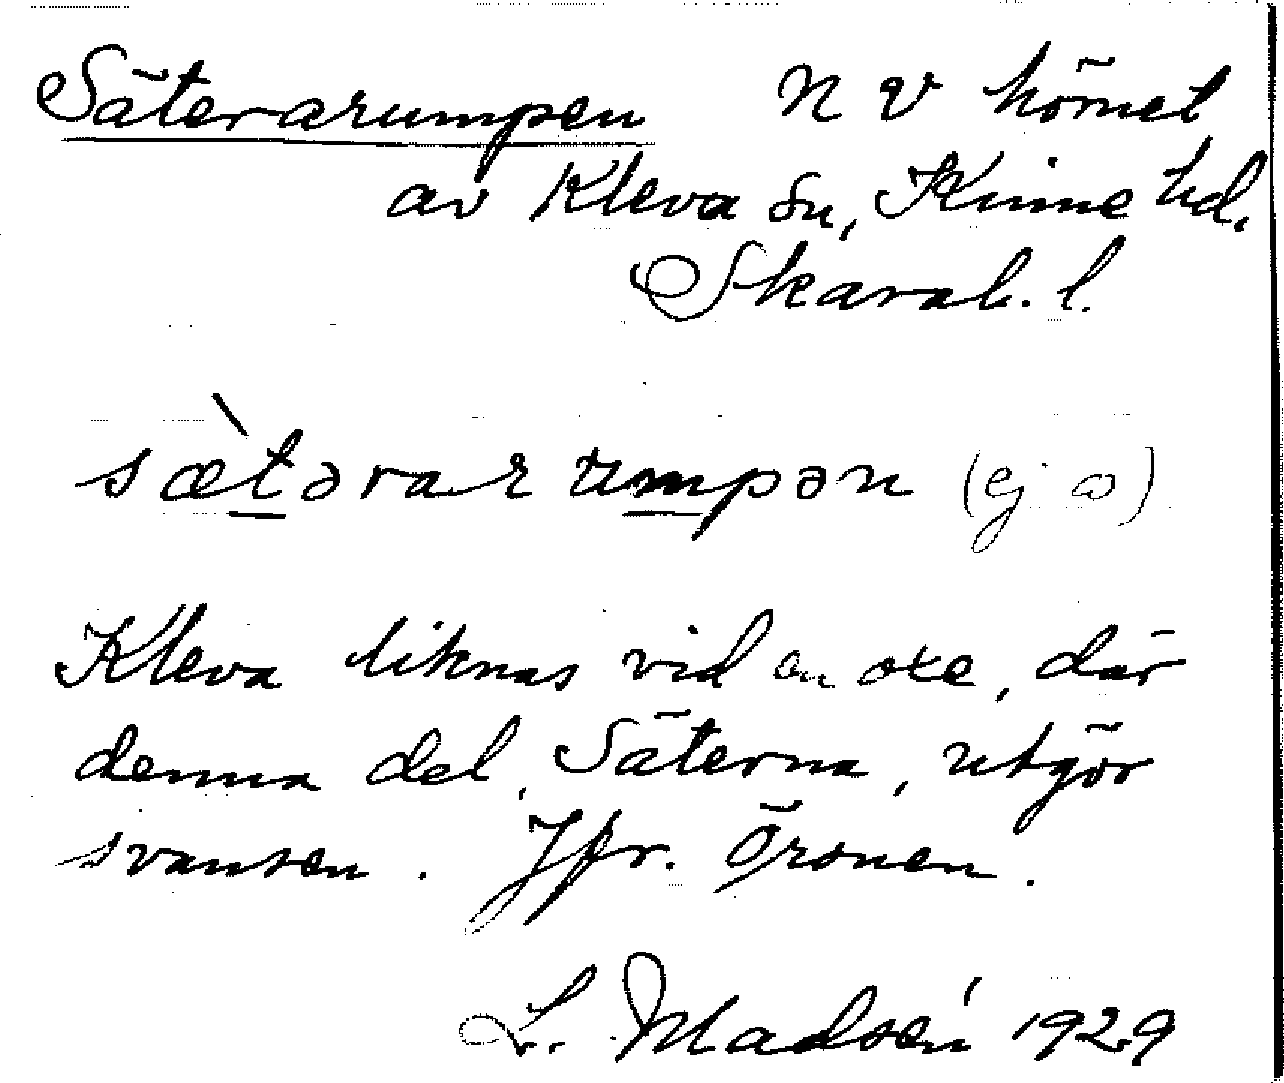 Säterarumpen N V hörnet
av Kleva sn, Kinne hd.
Skarab. l.
sæ̀tərarumpən (ej ɷ)
Kleva liknas vid en oxe, där
denna del, Säterna, utgör
svansen. Jfr. Öronen.
L. Madsén 1929